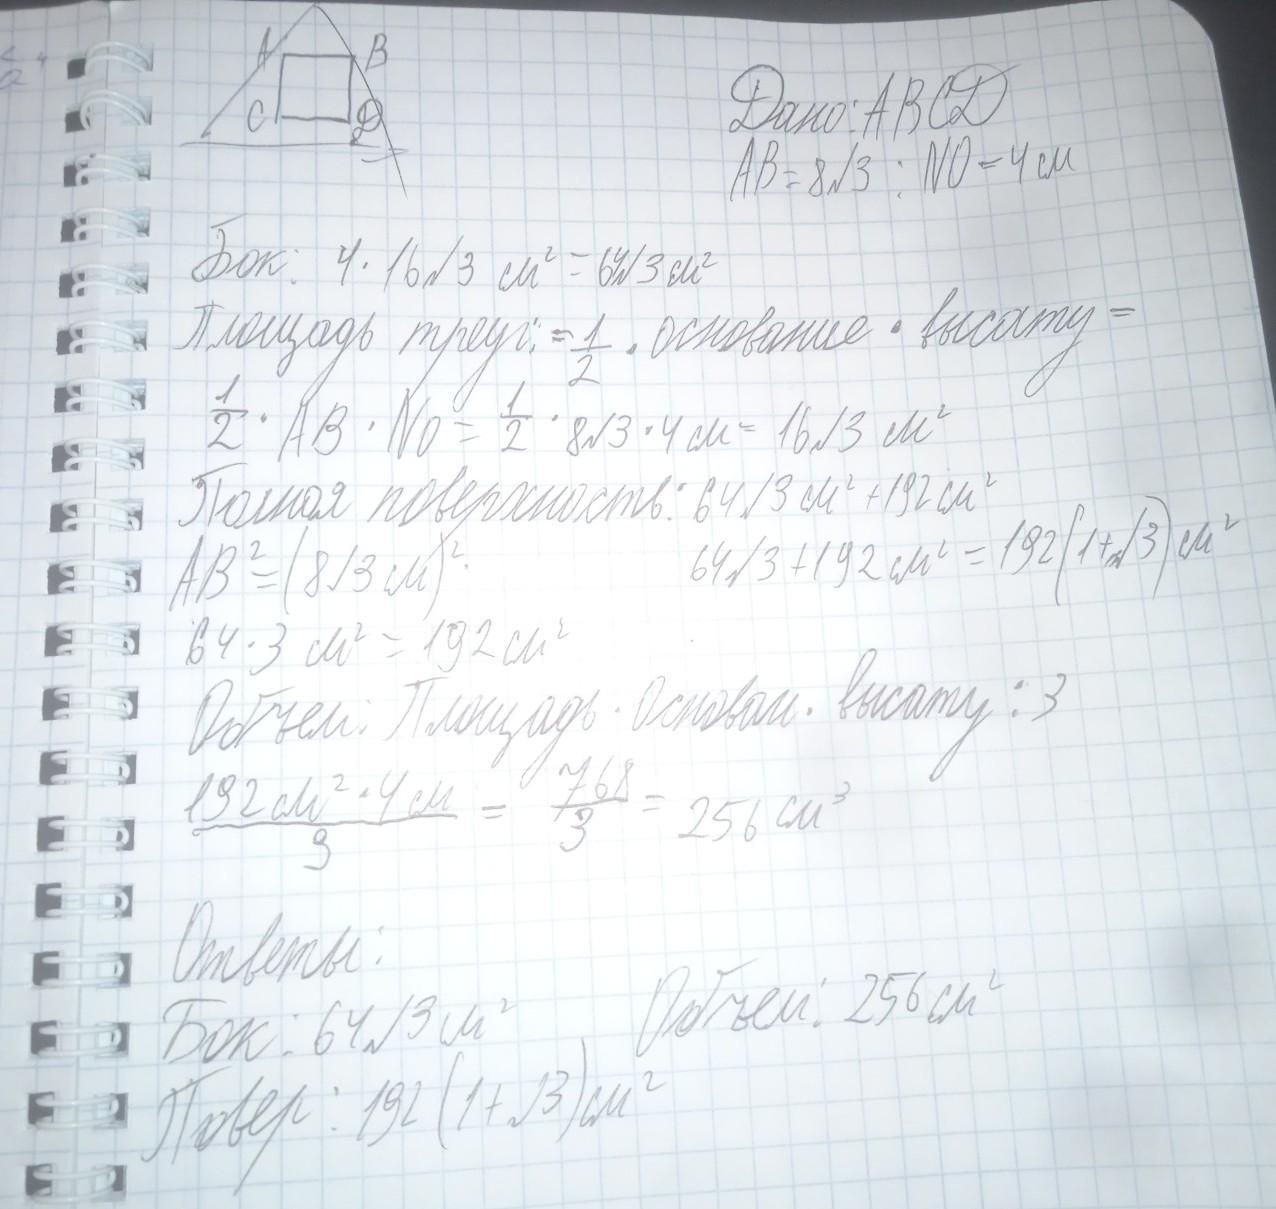 A B
C D
Дано: ABCD
AB = 8√3 : NO = 4 см
Бок: 4 · 16√3 см² = 64√3 см²
Площадь треуг: = 1/2 · основание · высату =
1/2 · AB · NO = 1/2 · 8√3 · 4 см = 16√3 см²
Полная поверхность: 64√3 см² + 192 см²
AB² = (8√3 см)².
64√3 + 192 см² = 192(1+√3) см²
64 · 3 см² = 192 см²
Объем: Площадь · Основан · высату : 3
192 см² · 4 см / 3 = 768 / 3 = 256 см³
Ответы:
Бок: 64√3 см²
Объем: 256 см²
Повер: 192(1+√3) см²